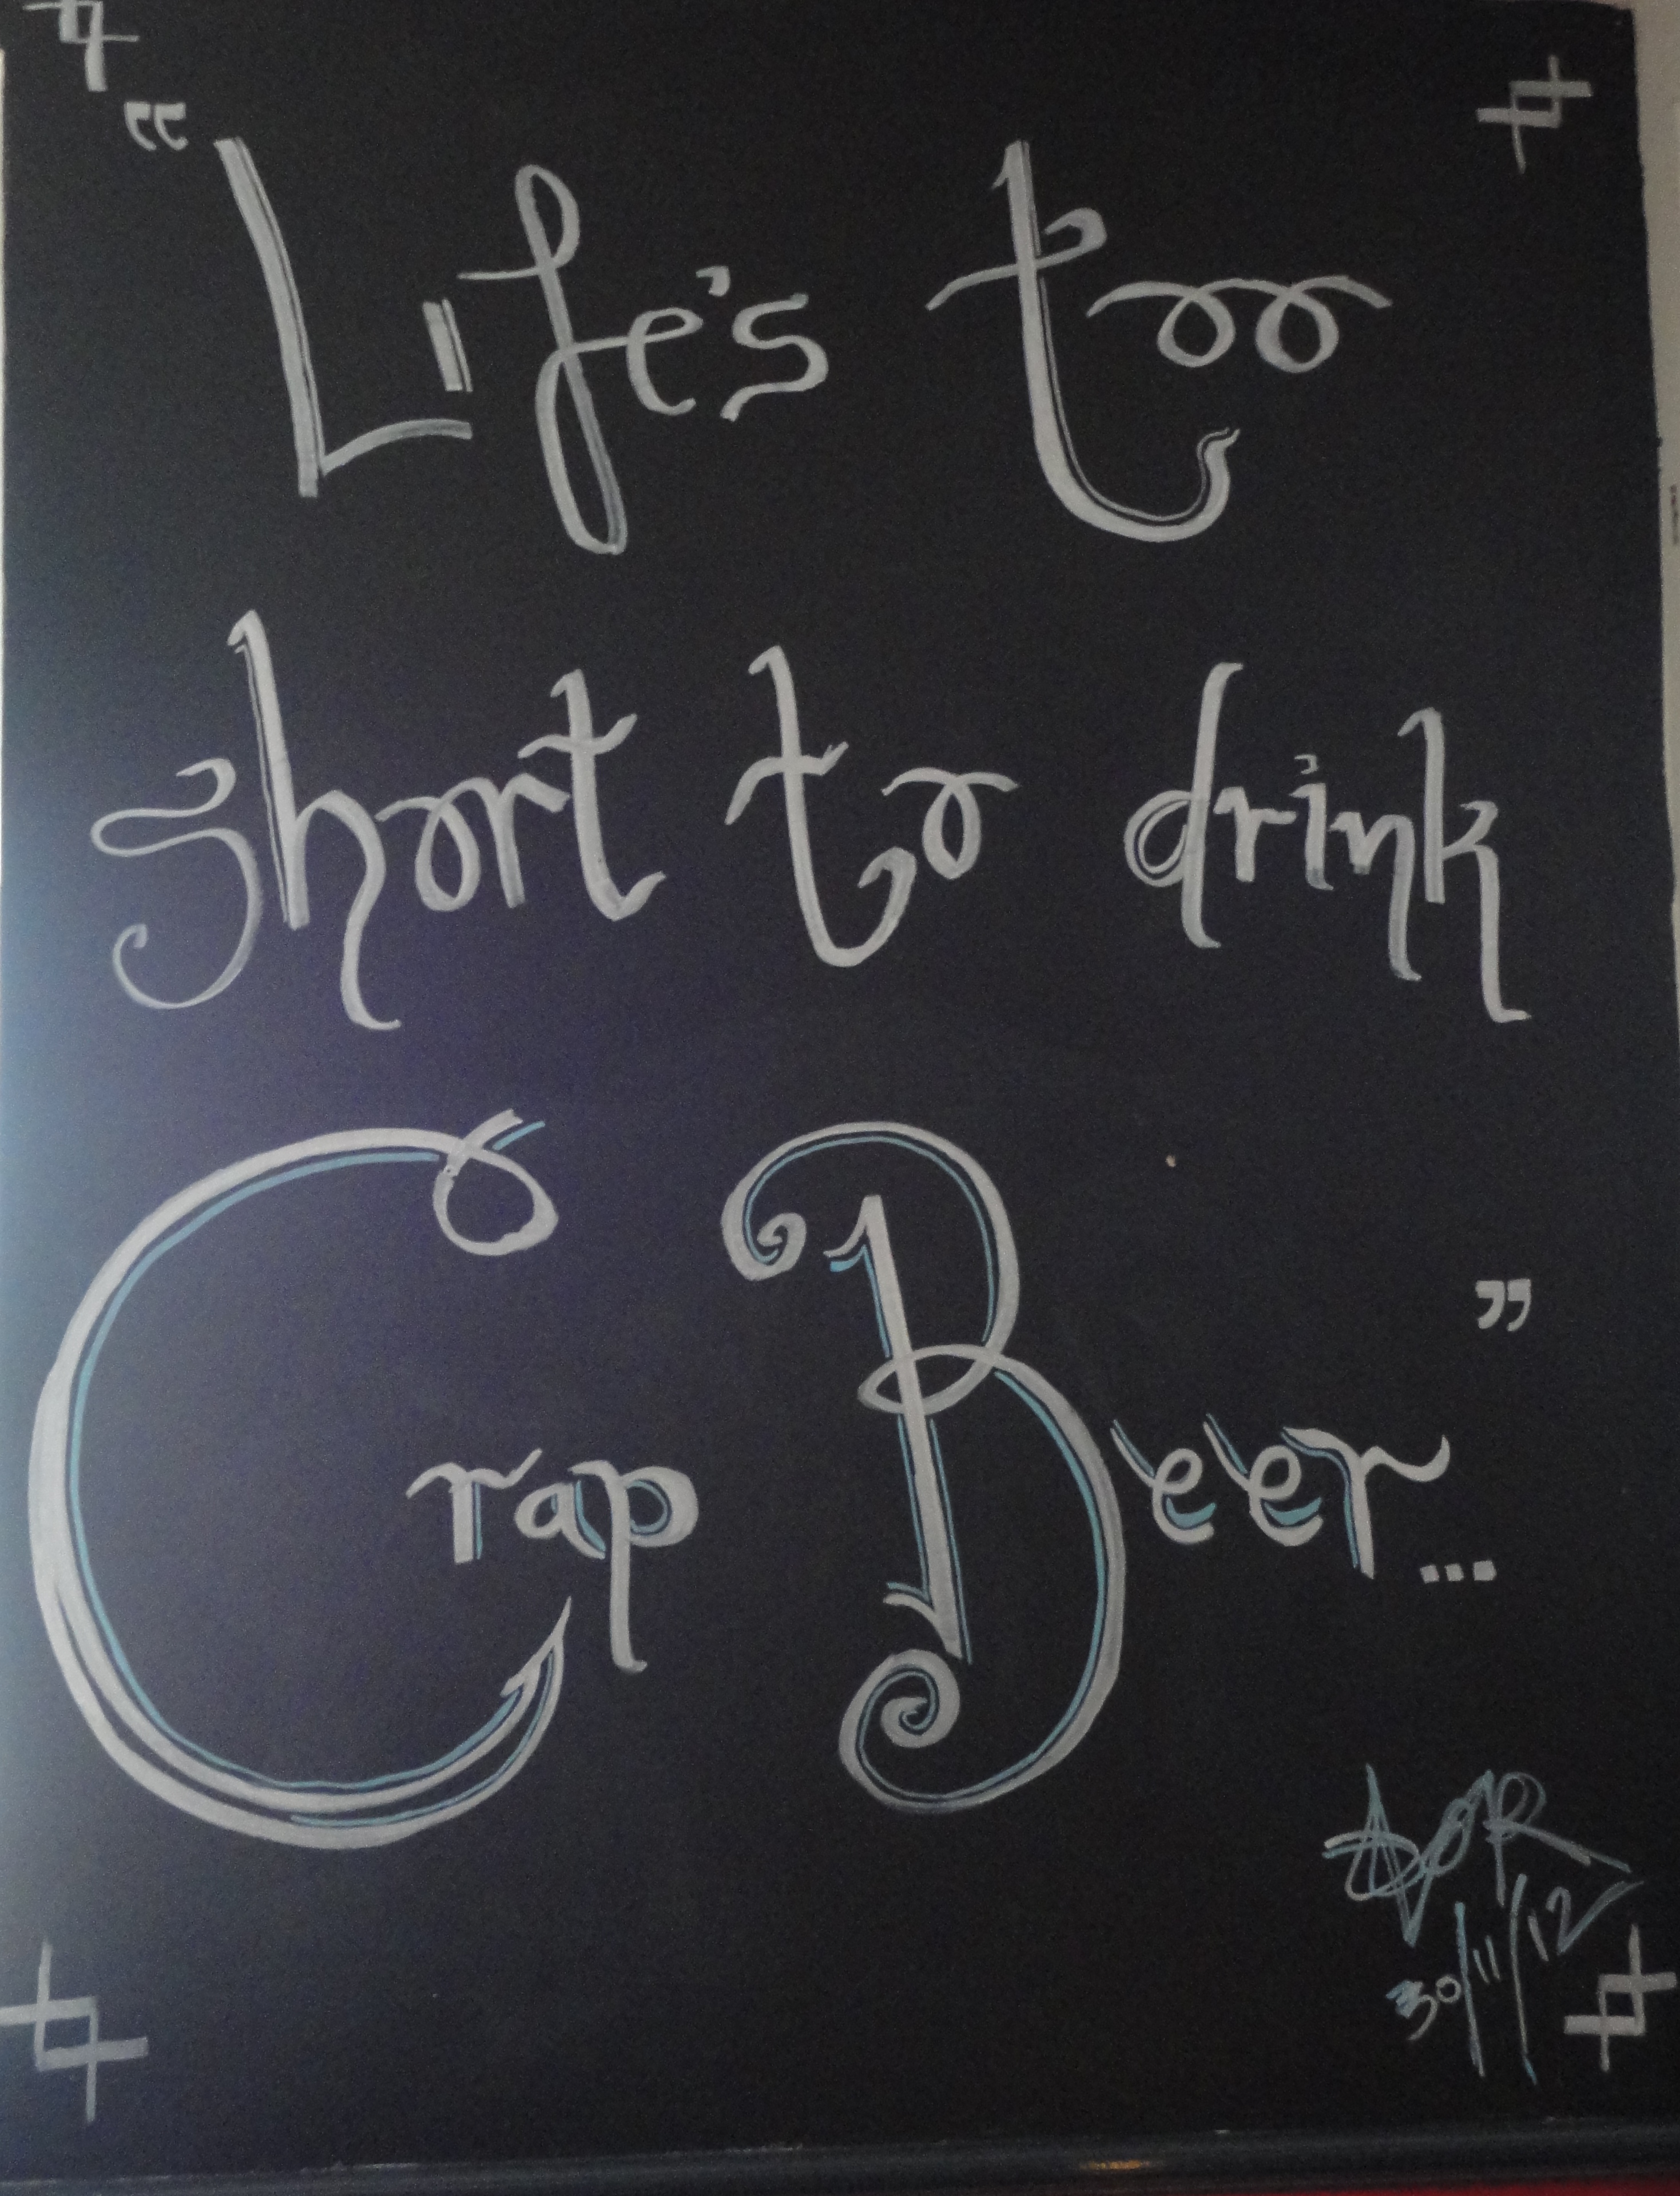 “Life's too
short to drink
Crap Beer...”
30/11/12